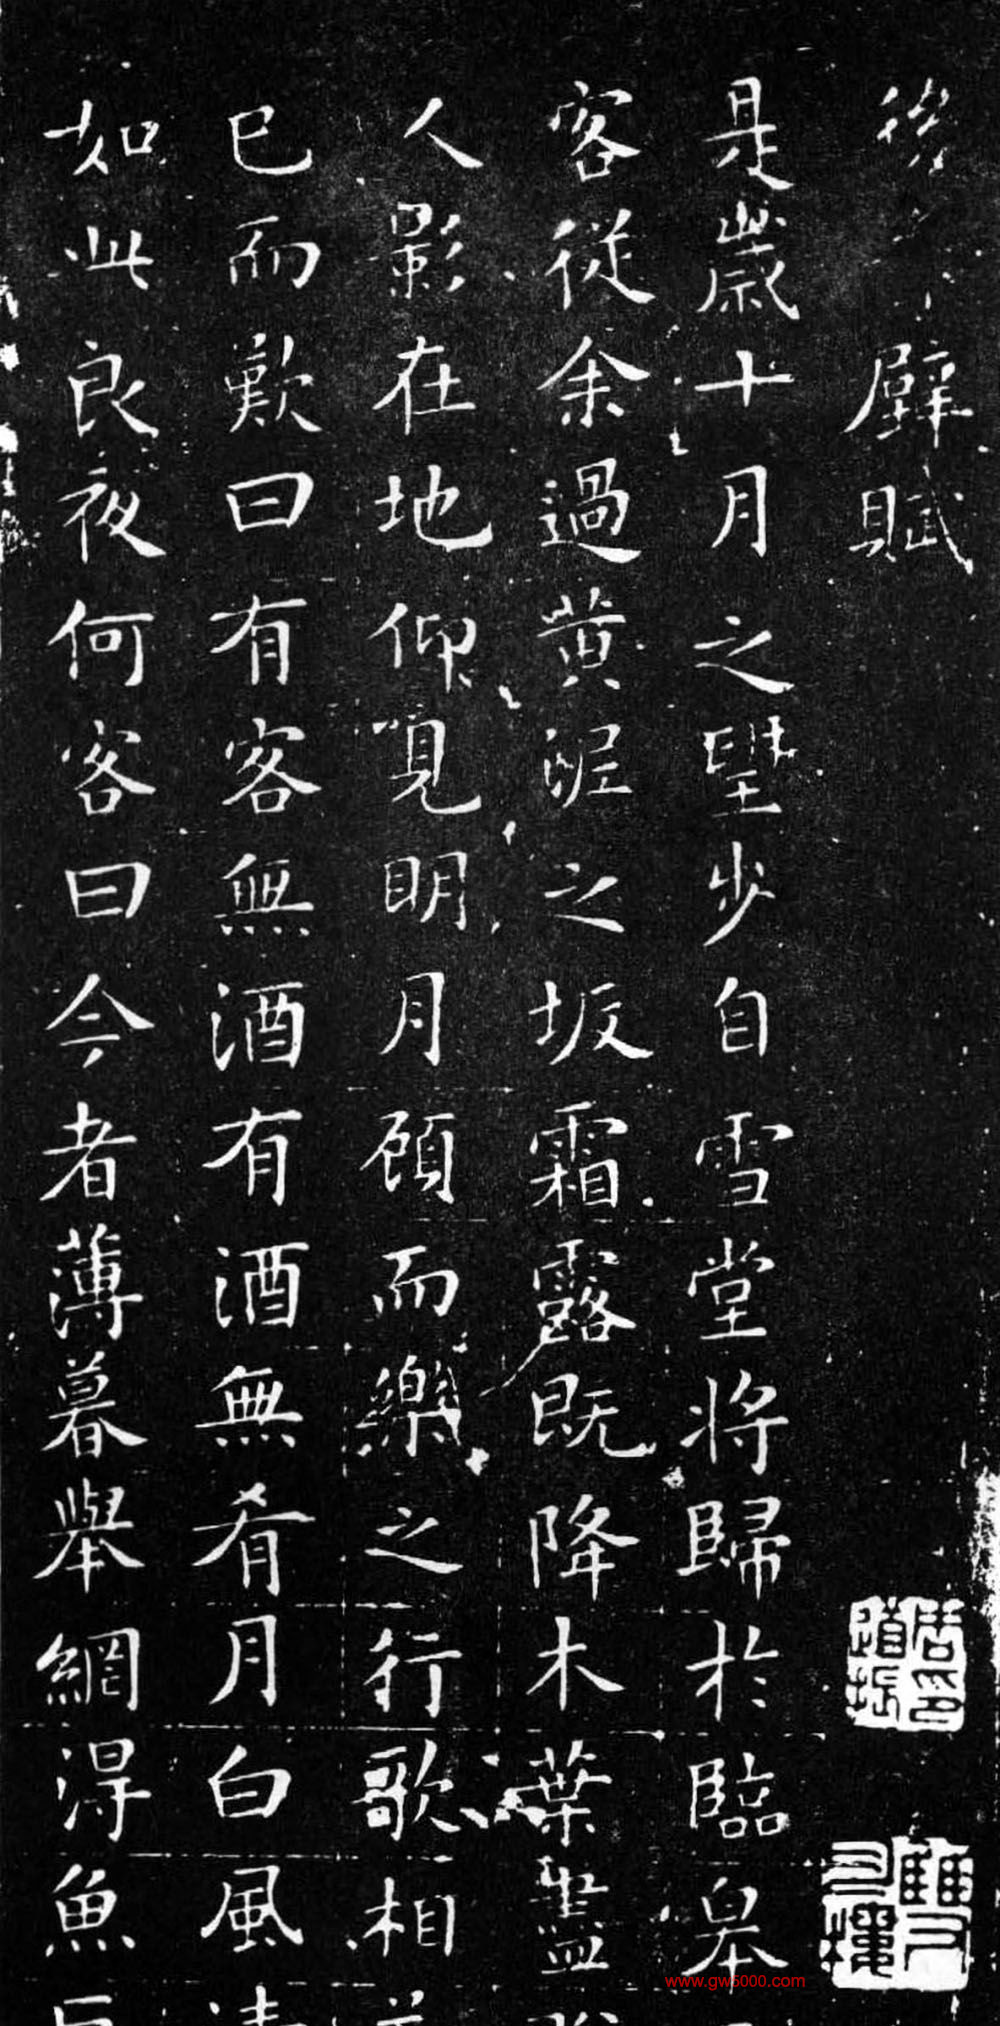 後壁賦
是歲十月之望步自雪堂將歸於臨皋
客從余過黃泥之坂霜露既降木葉盡
人影在地仰見明月顧而樂之行歌相
已而歎曰有客無酒有酒無肴月白風清
如此良夜何客曰今者薄暮舉網得魚巨
周印道振
www.gw5000.com